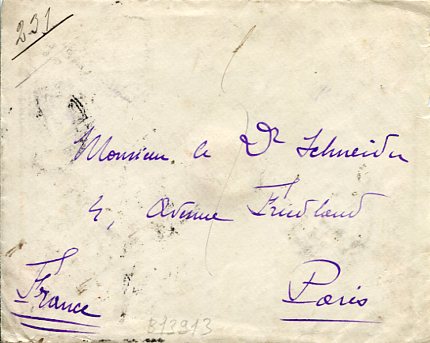 231
Monsieur le Dr Schneider
4, Avenue Friedland
France Paris
813913